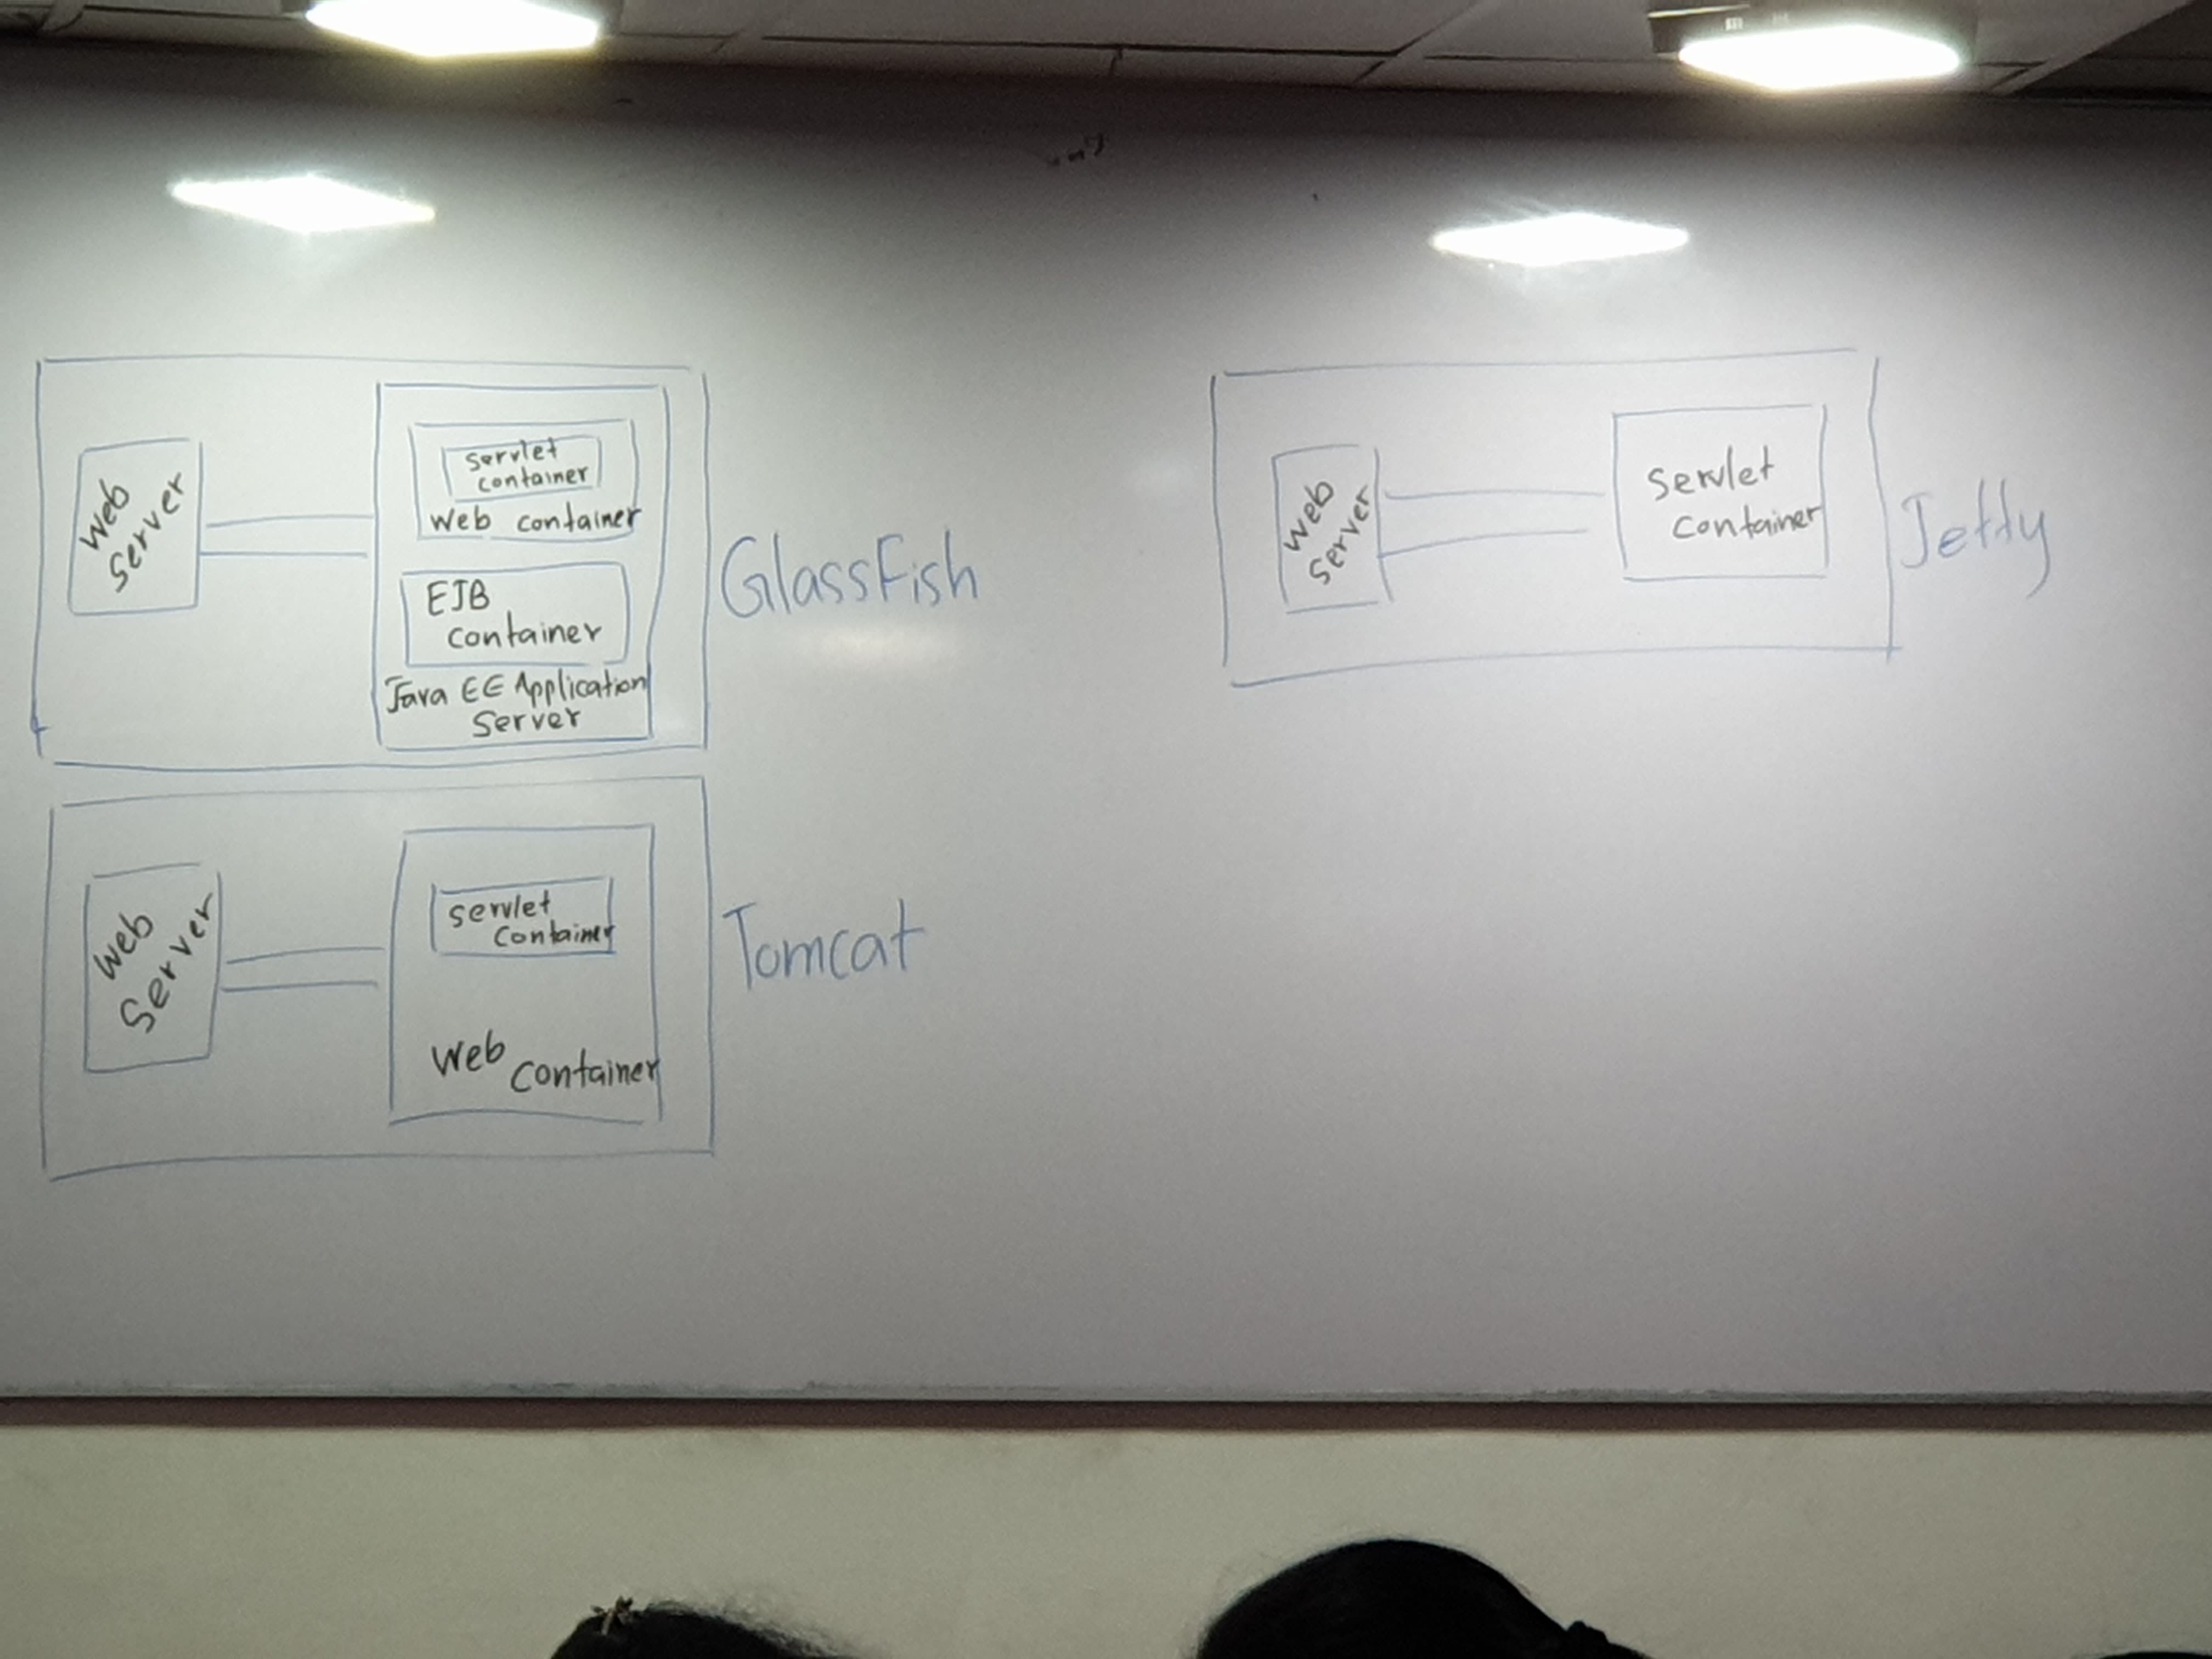 Web
Server
servlet
container
Web container
EJB
container
Java EE Application
Server
GlassFish
Web
Server
servlet
container
Web
container
Tomcat
Web
Server
Servlet
container
Jetty